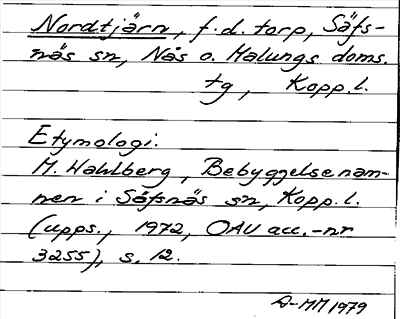 Nordtjärn, f.d. torp, Säfs-
näs sn, Nås o. Malungs doms.
tg, Kopp.l.
Etymologi:
M. Wahlberg, Bebyggelsenam-
nen i Säfsnäs sn, Kopp.l.
(upps., 1972, OAU acc.-nr
3255), s. 12.
A-MM 1979